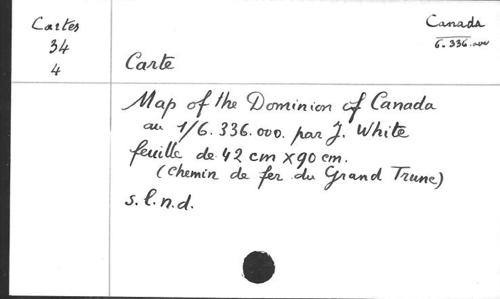 Cartes
34
4
Canada
6.336.000
Carte
Map of the Dominion of Canada
au 1/6.336.000. par J. White
feuille de 42 cm x 90 cm.
(chemin de fer du Grand Trunc)
s.l.n.d.